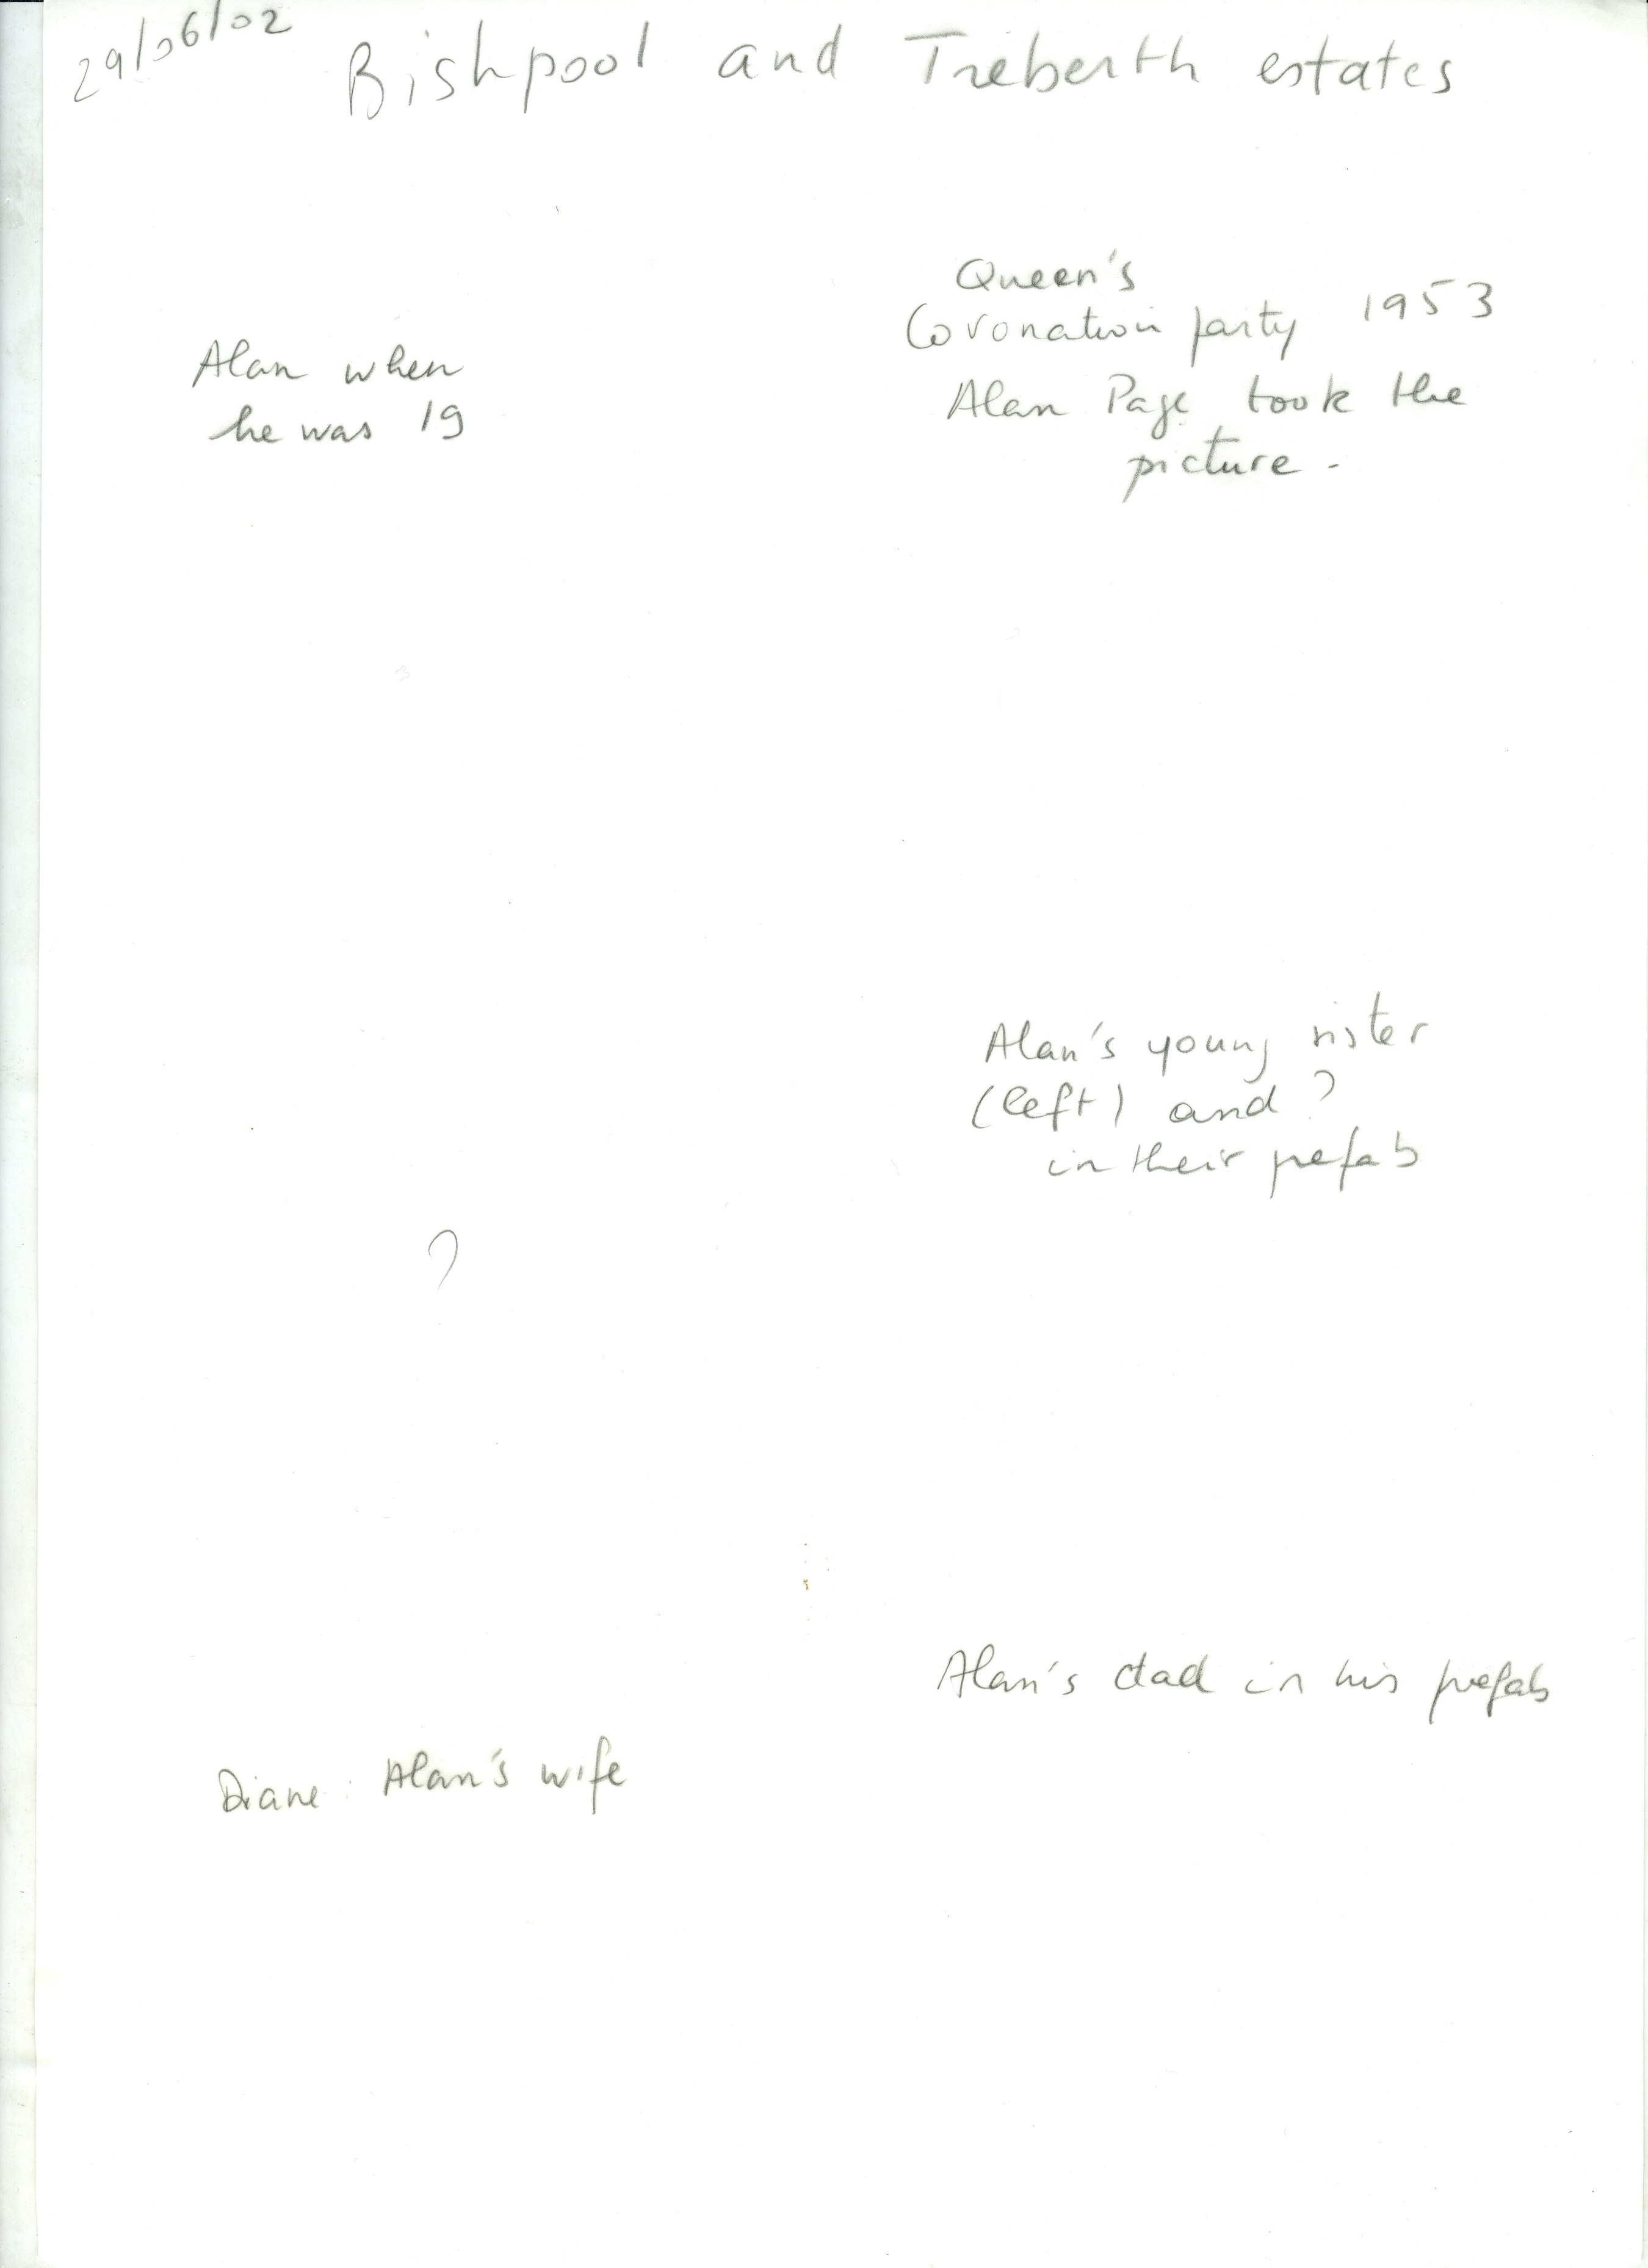 29/06/02
Bishpool and Treberth estates
Alan when
he was 19
Queen's
Coronation party 1953
Alan Page took the
picture -
Alan's young sister
(left) and ?
in their prefab
?
Alan's dad in his prefab
Diane : Alan's wife